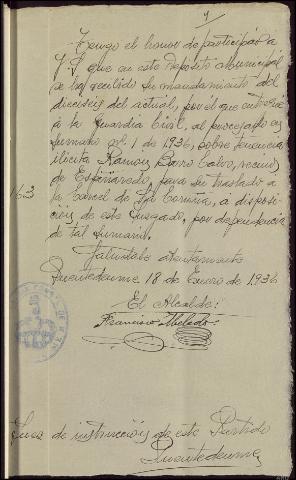 4
Tengo el honor de participar a
V.S. que en este Depósito Municipal
se ha recibido su mandamiento del
dieciseis del actual, por el que entregué
a la Guardia Civil, al procesado en
sumario nº 1 de 1936, sobre tenencia
ilícita Ramon Barro Calvo, vecino
de Espiñaredo, para su traslado a
163
la Carcel de La Coruña, a disposi-
ción de este Juzgado, por dependencia
de tal sumario.
Saludale atentamente
Puentedeume 18 de Enero de 1936
El Alcalde:
Francisco
Juez de instrucción de este Partido
Puentedeume